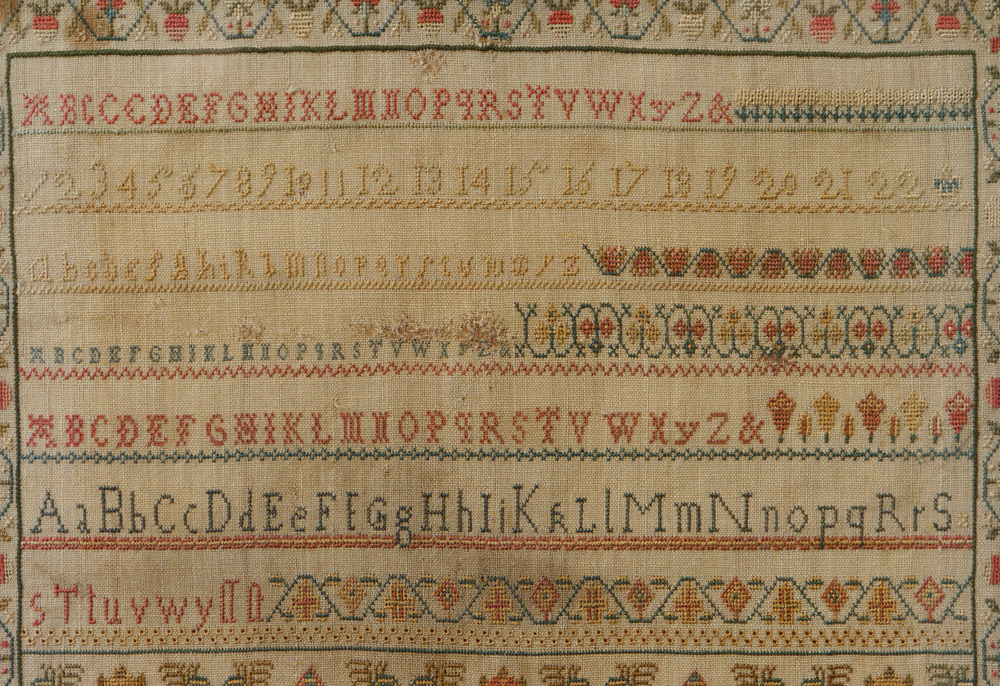 ABCCCDEFGHIKLMNOPqRSTVWXyZ&
1 2 3 4 5 6 7 8 9 10 11 12 13 14 15 16 17 18 19 20 21 22
ABCDEFGHIKLMNOPqRSTVWXyZ&
ABCDEFGHIKLMNOPqRSTVWXyZ&
AaBbCcDdEeFfGgHhIiKkLlMmNnopqRrS
sTtuvwy